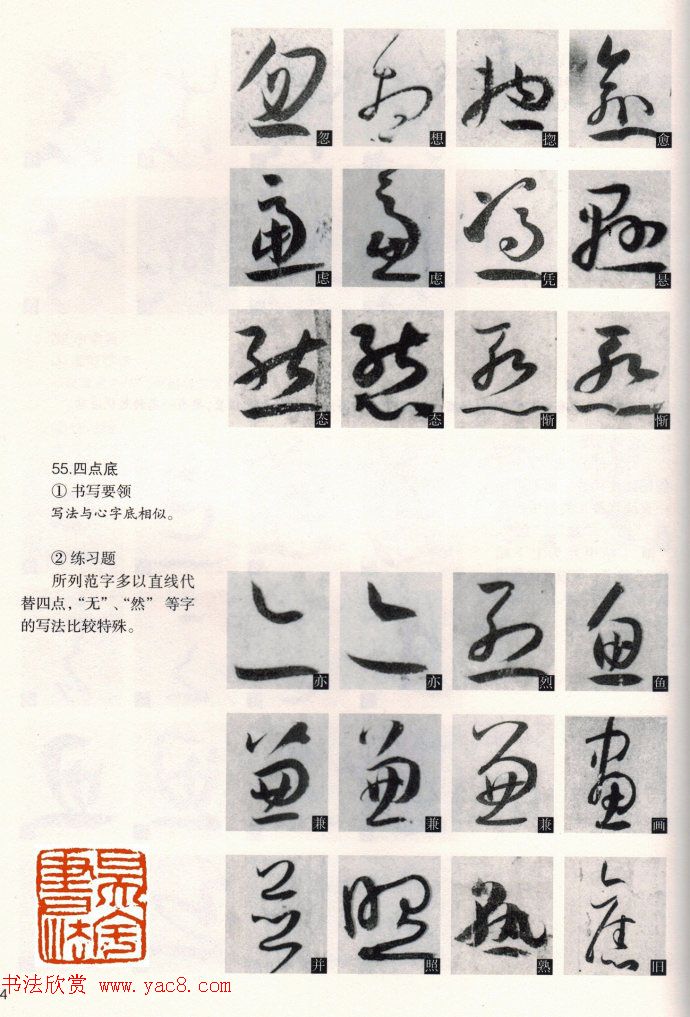 忽 想 揔 愈
虑 虑 凭 悬
态 态 惭 惭
55.四点底
① 书写要领
写法与心字底相似。
② 练习题
所列范字多以直线代
替四点，“无”、“然” 等字
的写法比较特殊。
亦 亦 烈 鱼
兼 兼 兼 画
并 照 熟 旧
书法欣赏 www.yac8.com
4